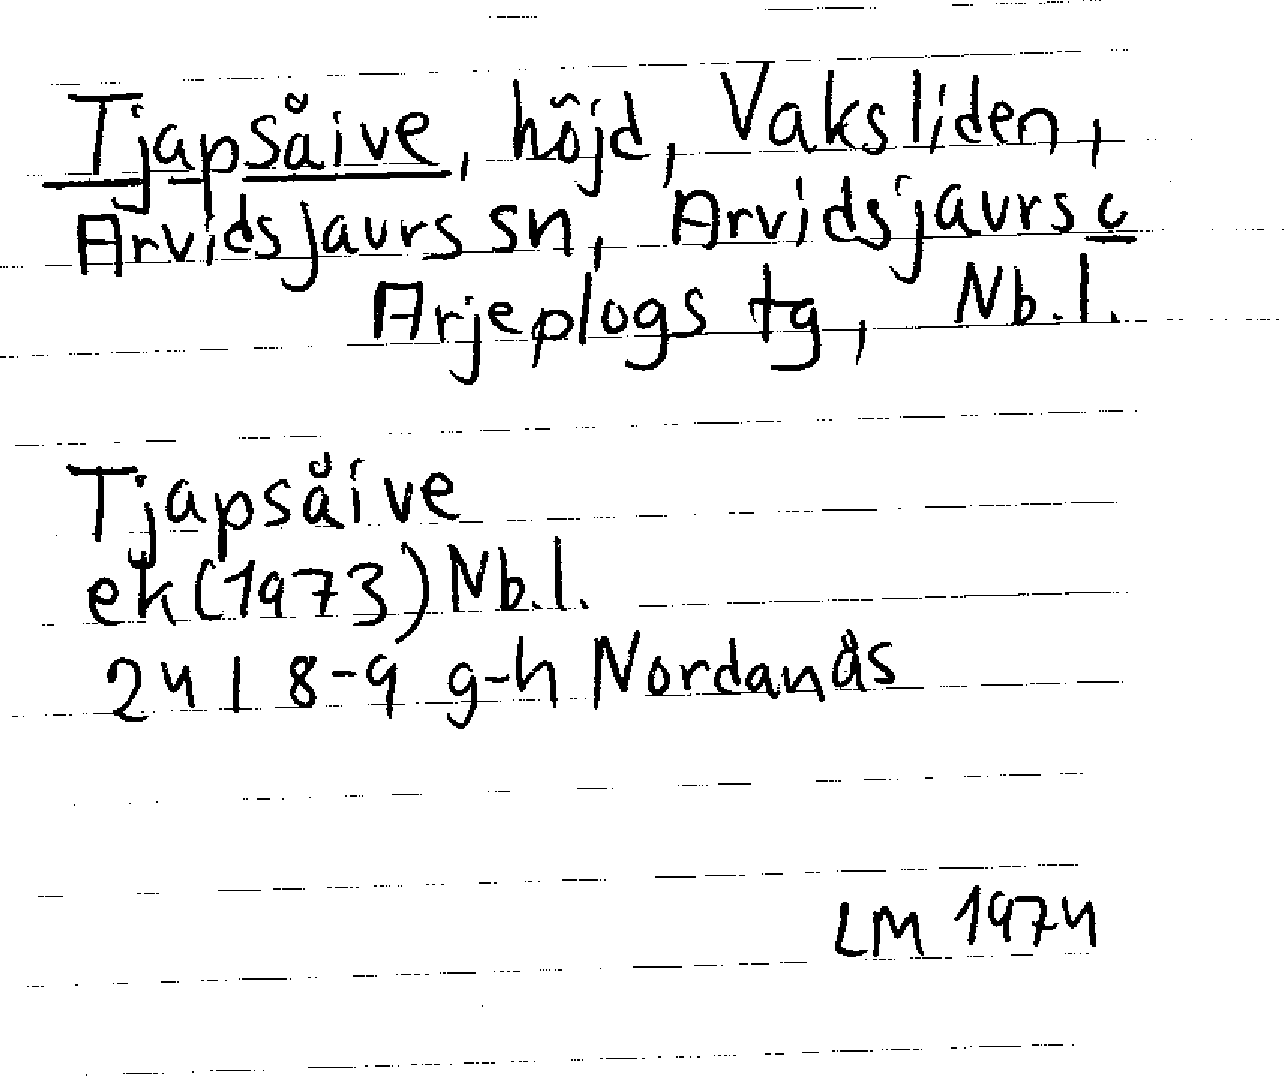 Tjapsåive, höjd, Vaksliden,
Arvidsjaurs sn, Arvidsjaurs o
Arjeplogs tg, Nb.l.
Tjapsåive
ek(1973) Nb.l.
24 I 8-9 g-h Nordanås
LM 1974